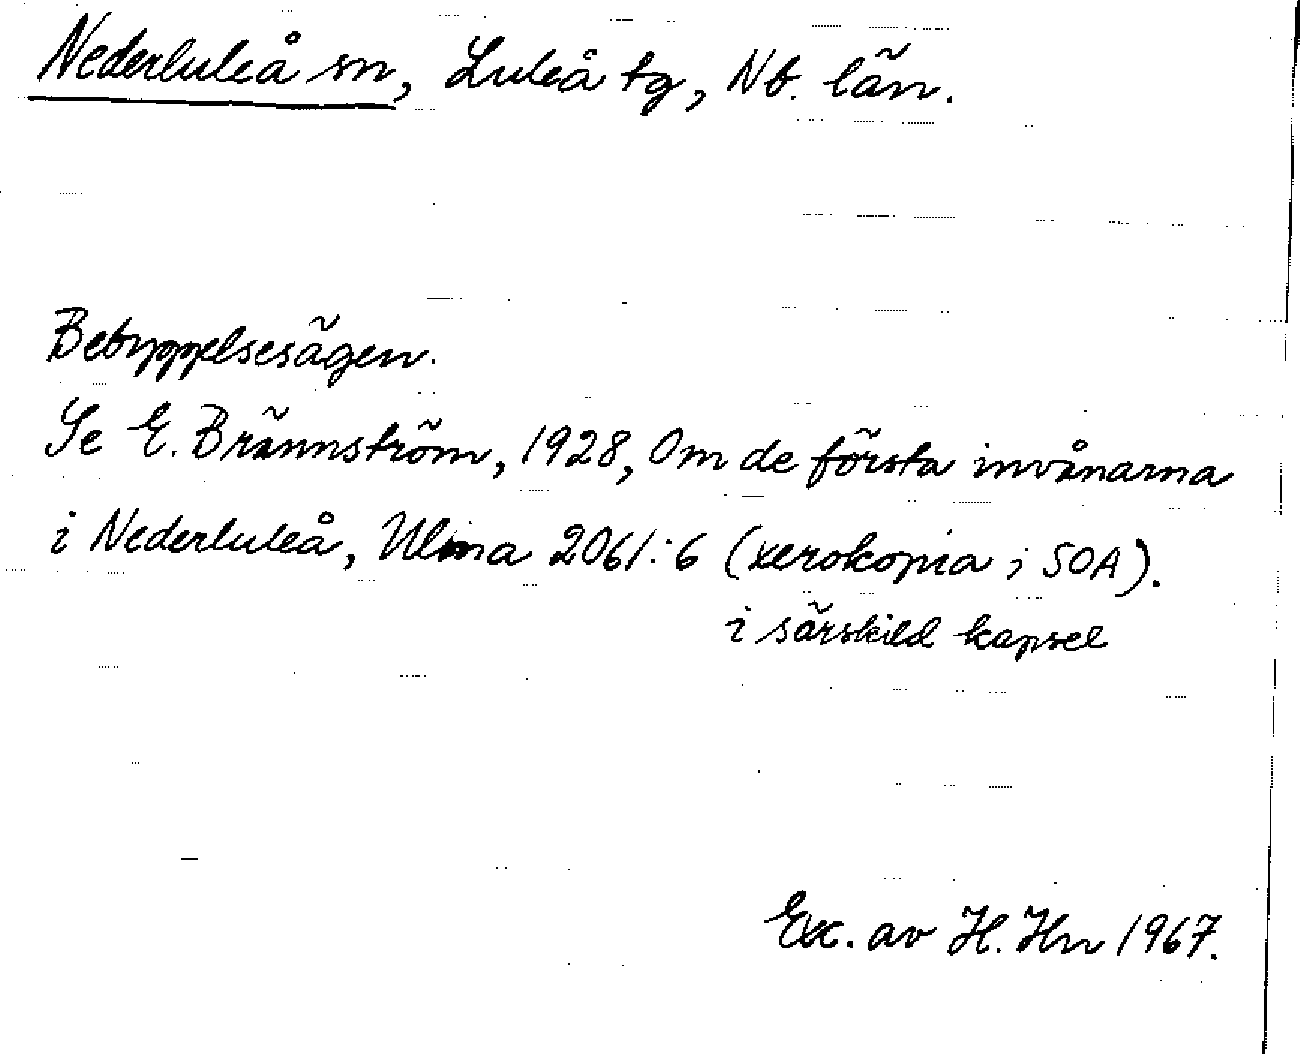 Nederluleå sn, Luleå tg, Nb. län.
Bebyggelsesägen.
Se E. Brännström, 1928, Om de första invånarna
i Nederluleå, Ulma 2061:6 (xerokopia i SOA).
i särskild kapsel
Exc. av H. Hn 1967.